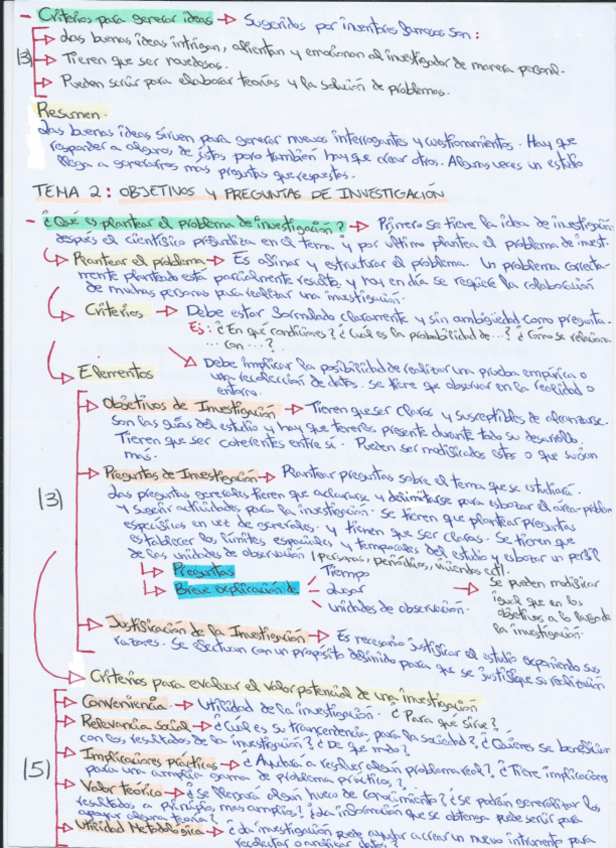 - Criterios para generar ideas → Sugeridos por inventores famosos son:
→ Las buenas ideas intrigan, alientan y emocionan al investigador de manera personal.
|3| → Tienen que ser novedosas.
→ Pueden servir para elaborar teorías y la solución de problemas.
Resumen.
Las buenas ideas sirven para generar nuevos interrogantes y cuestionamientos. Hay que
responder a algunos de éstos pero también hay que crear otros. Algunas veces un estudio
llega a generarnos mas preguntas que respuestas.
TEMA 2: OBJETIVOS Y PREGUNTAS DE INVESTIGACIÓN
- ¿Qué es plantear el problema de investigación? → Primero se tiene la idea de investigación
después el científico profundiza en el tema y por ultimo plantea el problema de invest.
→ Plantear el problema → Es afinar y estructurar el problema. Un problema correcta-
mente planteado está parcialmente resulto y hoy en día se requiere la colaboración
de muchas personas para realizar una investigación.
→ Criterios → Debe estar formulado claramente y sin ambigüedad como pregunta.
Ej: ¿En qué condiciones? ¿Cuál es la probabilidad de...? ¿Cómo se relaciona
... con ...?
→ Debe implicar la posibilidad de realizar una prueba empírica o
una recolección de datos. Se tiene que observar en la realidad o
entorno.
→ Elementos
→ Objetivos de Investigación → Tienen que ser claros y susceptibles de alcanzarse.
Son las guías del estudio y hay que tenerlos presente durante todo su desarrollo.
Tienen que ser coherentes entre sí. Pueden ser modificados estos o que surjan
más.
|3| → Preguntas de Investigación → Plantear preguntas sobre el tema que se estudiará.
Las preguntas generales tienen que aclararse y delimitarse para esbozar el área-problema
y sugerir actividades para la investigación. Se tienen que plantear preguntas
específicas en vez de generales. y tienen que ser claras. Se tienen que
establecer los límites espaciales y temporales del estudio y esbozar un perfil
de las unidades de observación (personas, periódicos, viviendas ect).
→ Preguntas
→ Breve explicación de - Tiempo
- Lugar
- Unidades de observación.
→ Se pueden modificar
igual que en los
objetivos a lo largo de
la investigación.
→ Justificación de la Investigación → Es necesario justificar el estudio exponiendo sus
razones. Se efectuan con un propósito definido para que se justifique su realización
→ Criterios para evaluar el valor potencial de una investigación
→ Conveniencia → Utilidad de la investigación. ¿Para qué sirve?
→ Relevancia social → ¿Cuál es su trancendencia para la sociedad? ¿Quienes se benefician
con los resultados de la investigación? ¿De que modo?
|5| → Implicaciones prácticas → ¿Ayudará a resolver algún problema real? ¿Tiene implicaciones
para una amplia gama de problema prácticos?
→ Valor teórico → ¿Se llenará algún hueco de conocimiento? ¿Se podrán generalizar los
resultados a principios mas amplios? ¿La información que se obtenga puede servir para
apoyar alguna teoría?
→ Utilidad Metodológica → ¿La investigación puede ayudar a crear un nuevo intrumento para
recolectar o analizar datos?